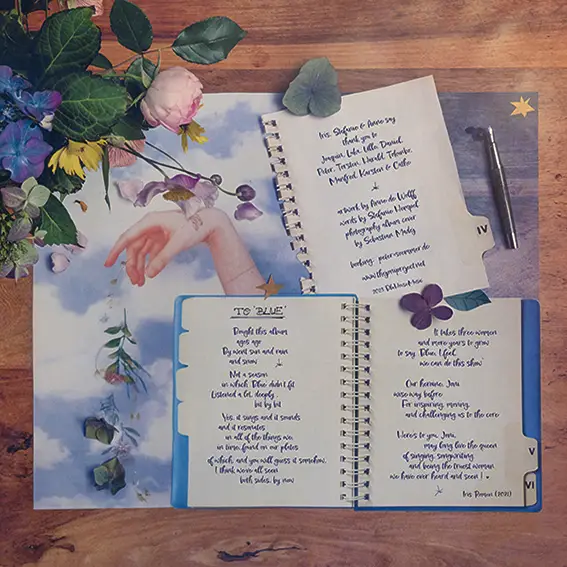 Iris, Stefanie & Anne say
thank you to
Joaquin, Lola, Ulla, Daniel,
Peter, Torsten, Harald, Tolomke,
Manfred, Karsten & Catho
artwork by Anne de Wolff
words by Stefanie Hempel
photography album cover
by Sebastian Madej
booking: petersommer.de
www.thejoniproject.net
IV
TO 'BLUE'
Bought this album
ages ago
By went sun and rain
and snow
Not a season
in which 'Blue' didn't fit
Listened a lot, deeply,
bit by bit
Yes, it sings and it sounds
and it resonates
in all of the things we,
in time, found on our plates
of which, and you will guess it somehow,
I think we've all seen
both sides, by now
It takes three women
and more years to grow
to say: 'Blue, I feel,
we can do this show'
Our heroine, Joni
wise way before
For inspiring, moving,
and challenging us to the core
Here's to you, Joni,
may long live the queen
of singing, songwriting
and being the truest woman
we have ever heard and seen!
Iris Romen (2021)
V
VI